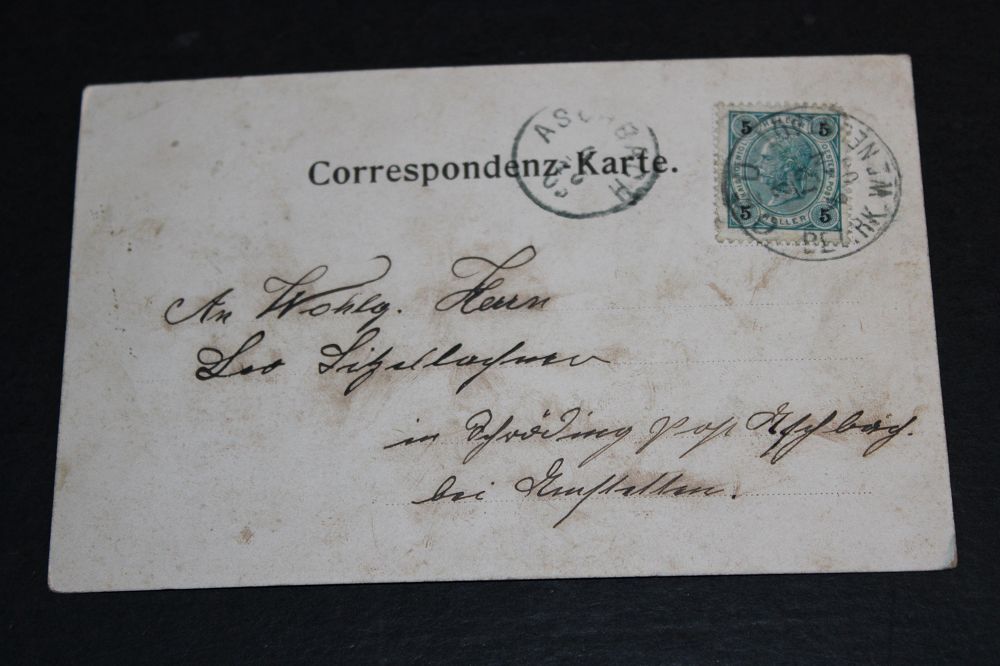 Correspondenz-Karte.
ASCHBACH
5 5
5 5
HELLER
An Wohlg. Herrn
Leo Sitzellachner
in Schröding Post Aschbach.
bei Amstetten.